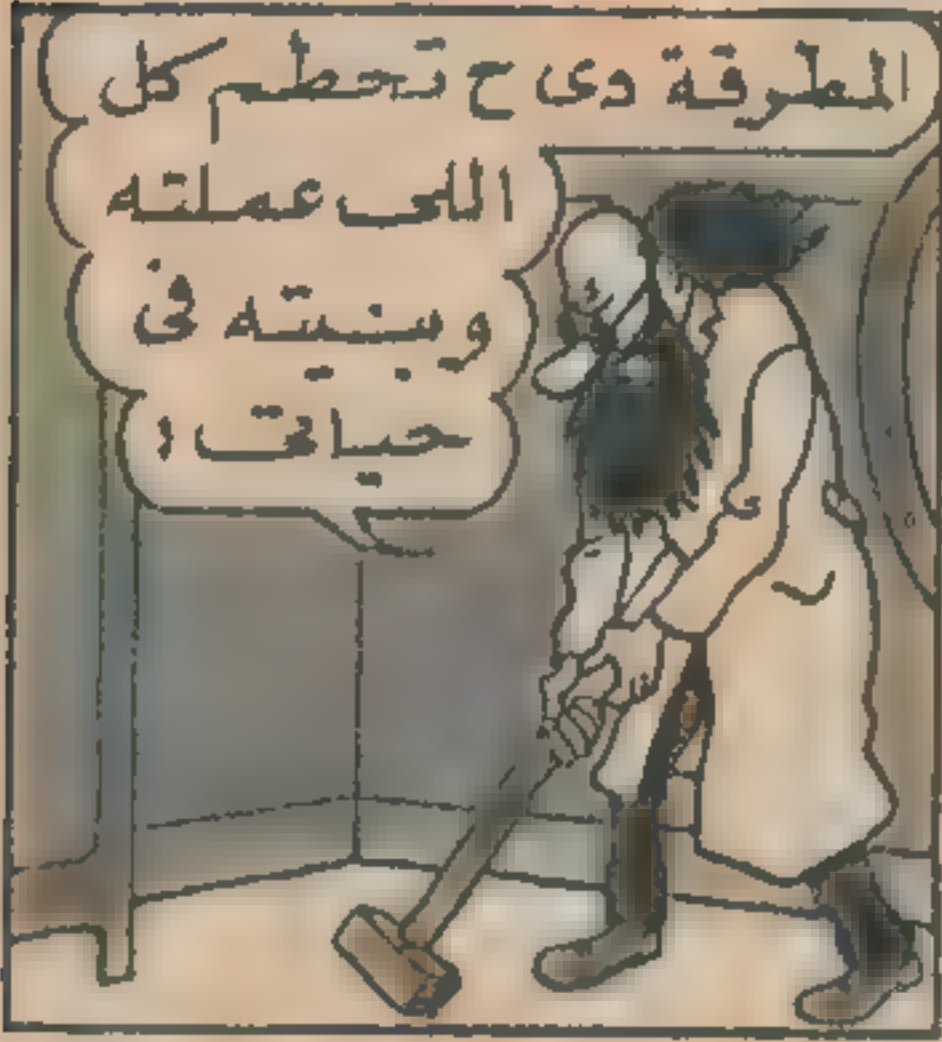 المطرقة دى ح تحطم كل
اللى عملته
وبنيته فى
حياتى !